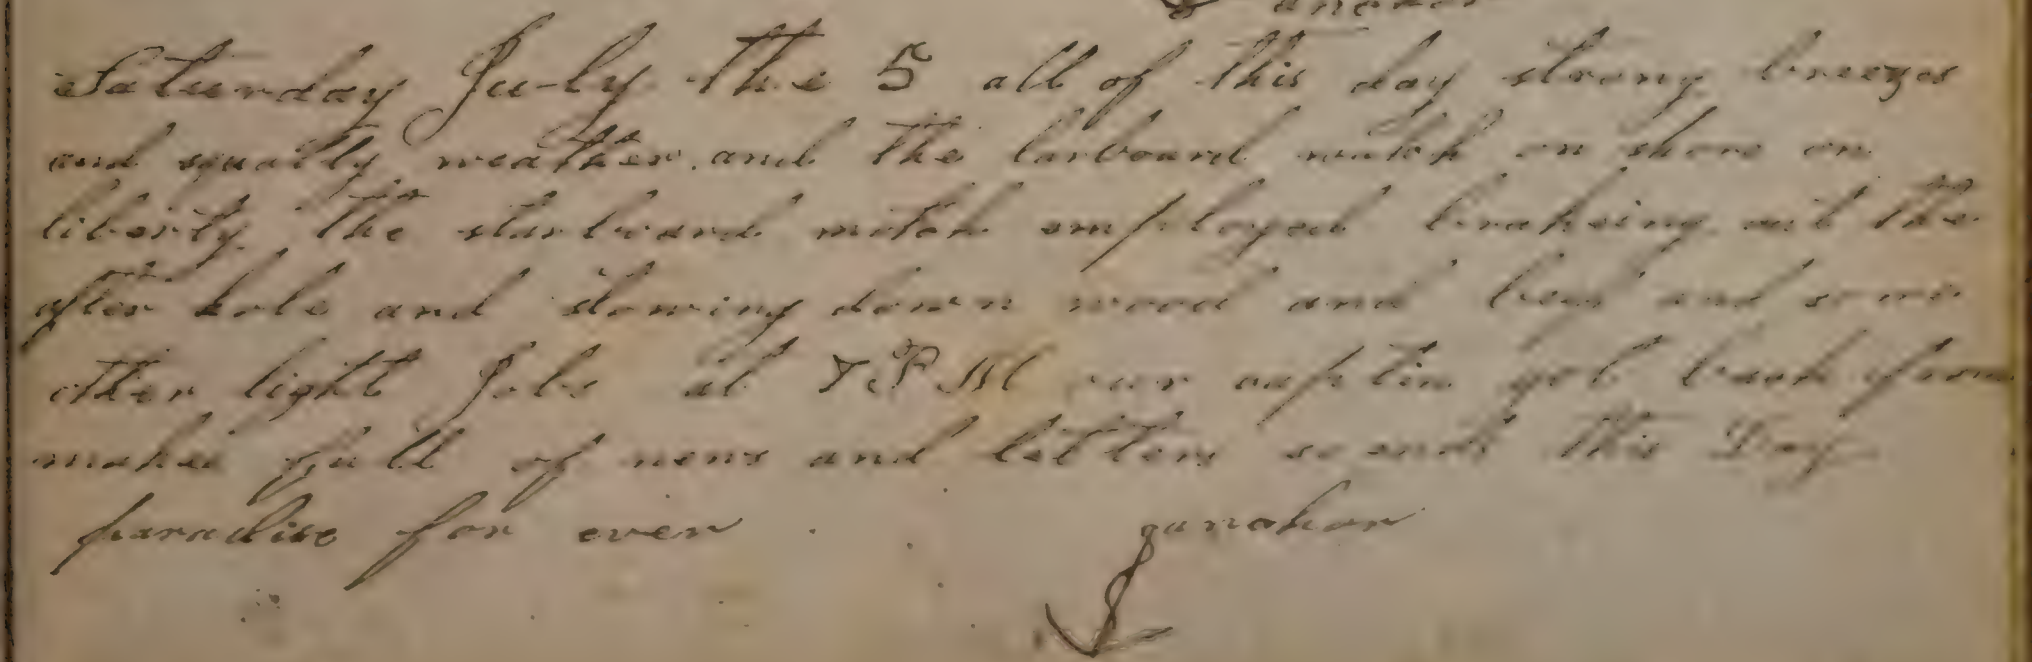 anchor
Saturday July the 5 all of this day strong breezes
and squally weather. and the larboard watch on shore on
liberty the starboard watch employed brakeing out the
after hole and stowing down wood and and some
other light Jobs at 7 P M our captin got back from
full of news and letters so ends this Day
paradise for ever